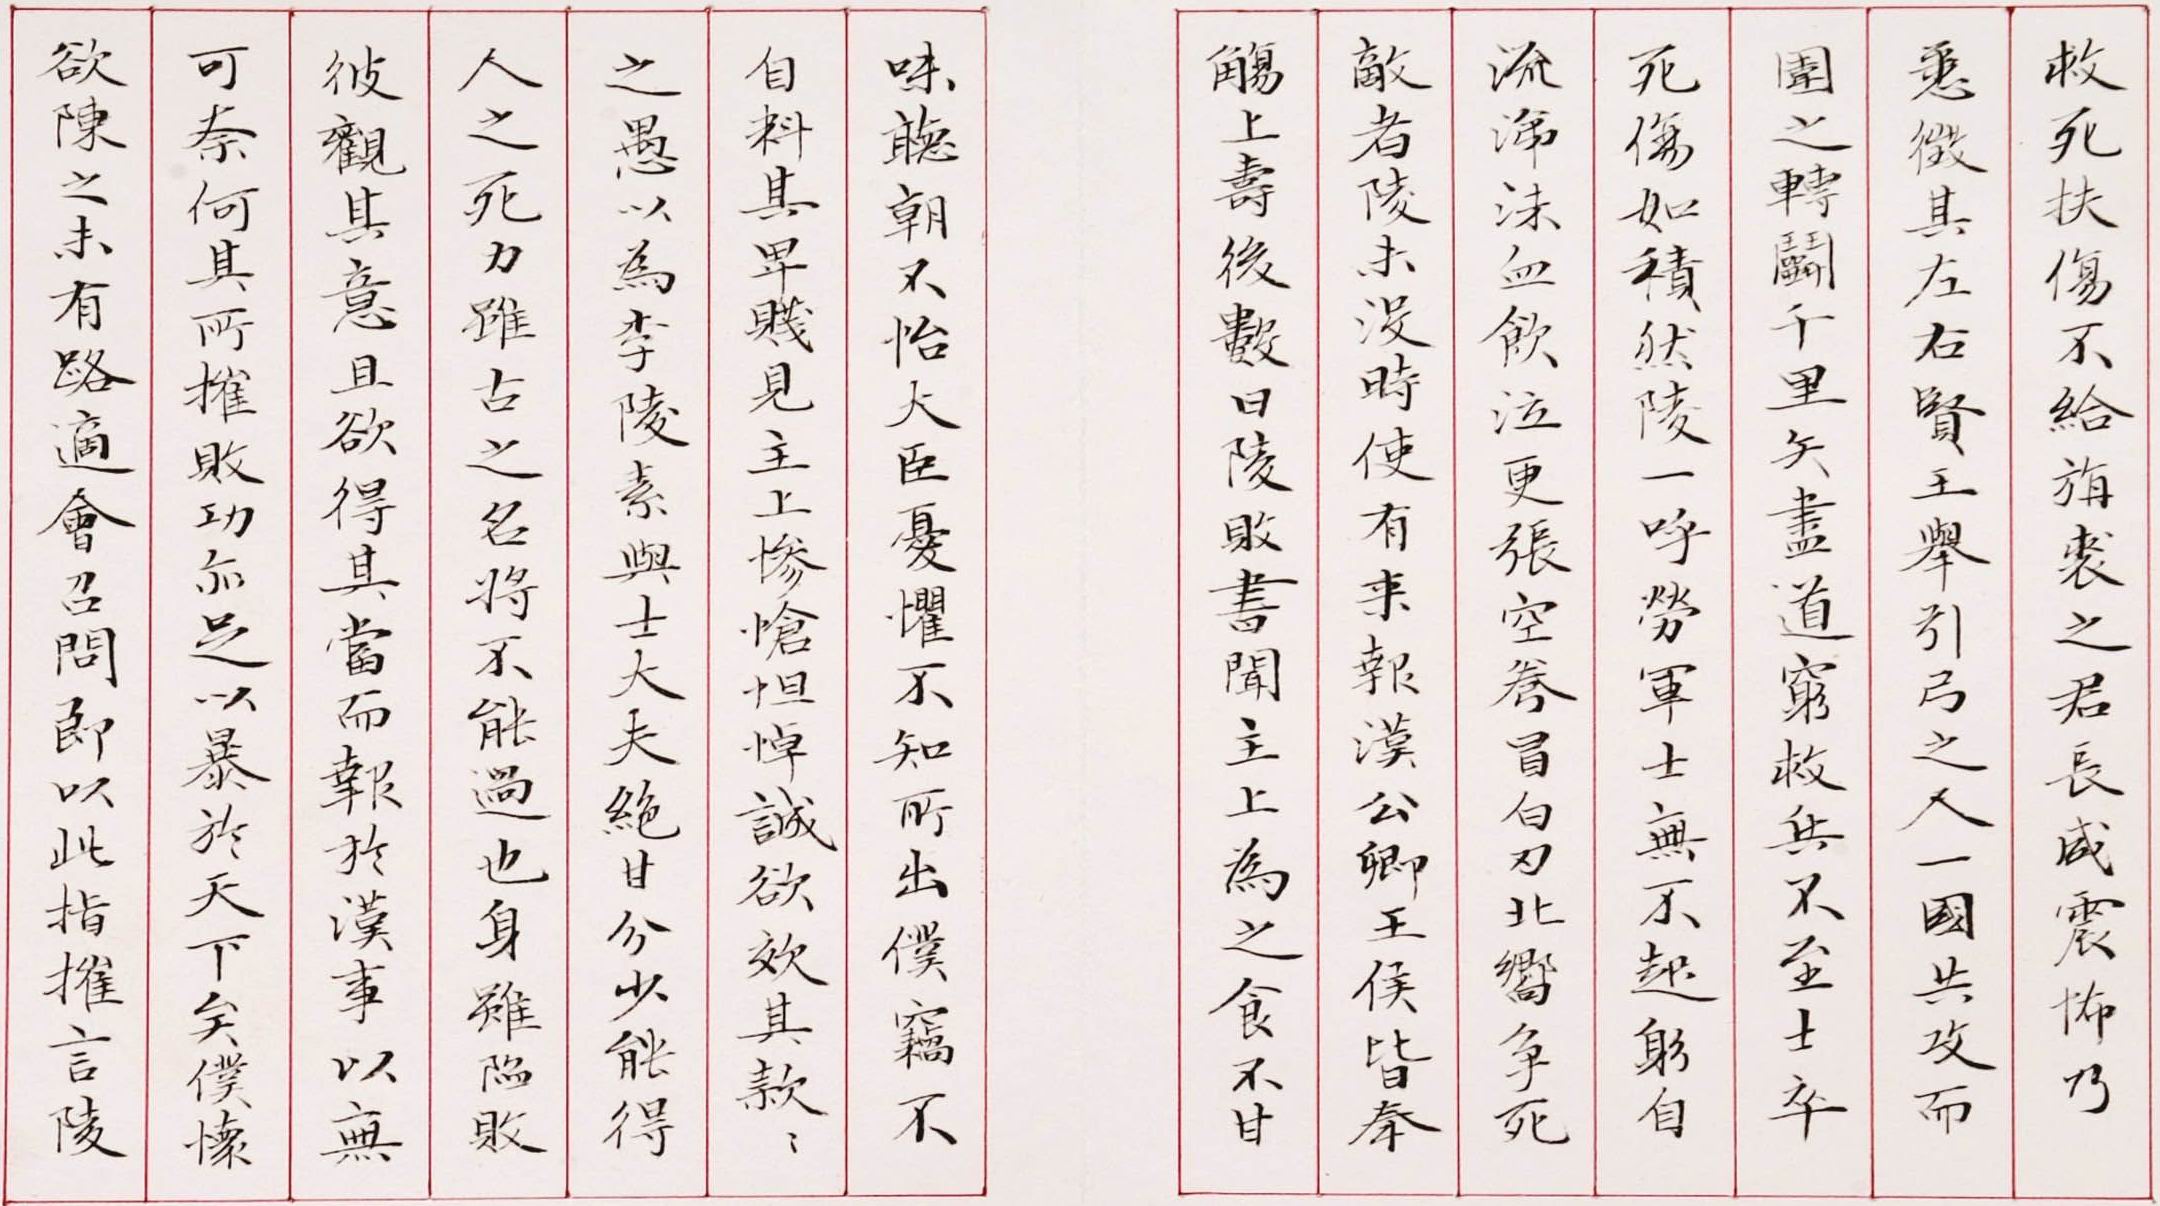 救死扶傷不給旃裘之君長咸震怖乃
悉徵其左右賢王舉引弓之人一國共攻而
圍之轉鬭千里矢盡道窮救兵不至士卒
死傷如積然陵一呼勞軍士無不起躬自
流涕沬血飲泣更張空弮冒白刃北嚮争死
敵者陵未沒時使有来報漢公卿王侯皆奉
觴上壽後數日陵敗書聞主上為之食不甘
味聽朝不怡大臣憂懼不知所出僕竊不
自料其卑賤見主上慘愴怛悼誠欲效其款〻
之愚以為李陵素與士大夫絶甘分少能得
人之死力雖古之名將不能過也身雖陷敗
彼觀其意且欲得其當而報於漢事以無
可奈何其所摧敗功亦足以暴於天下矣僕懷
欲陳之未有路適會召問即以此指摧言陵